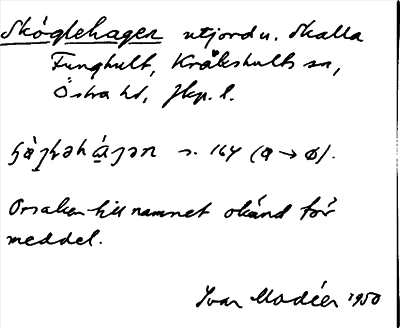 Skóglehagen utjord u. Skalla
Funghult, Kråkshults sn,
Östra hd, Jkp. l.
s. 164 (a → ø).
Orsaken till namnet okänd för
meddel.
Ivar Modéer 1950